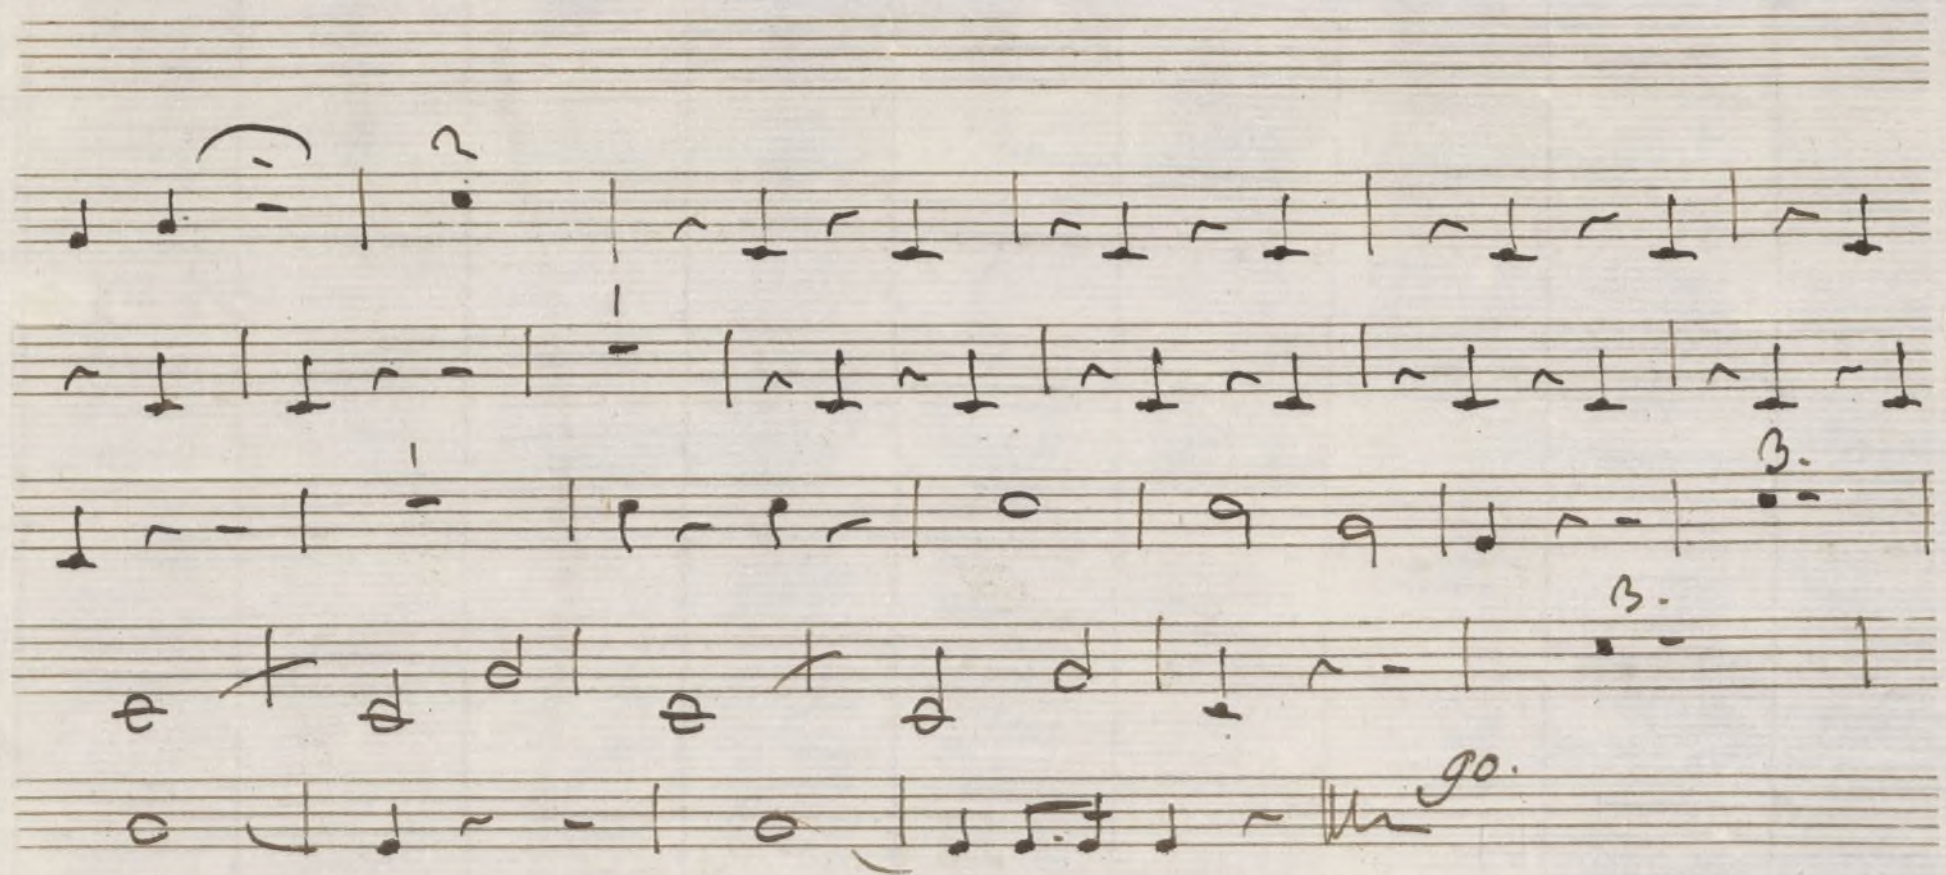 2
1
1
3.
3.
90.